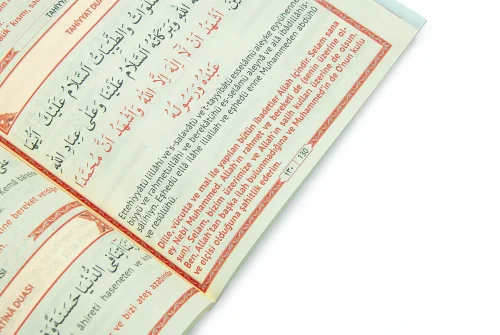 TAHİYYAT DUA
وَالصَّلَوَاتُ وَالطَّيِّبَاتُ اَلسَّلَامُ عَلَيْكَ اَيُّهَا
اللّٰهِ وَبَرَكَاتُهُ اَلسَّلَامُ عَلَيْنَا وَعَلٰى عِبَادِ اللّٰهِ
اَشْهَدُ اَنْ لَا اِلٰهَ اِلَّا اللّٰهُ وَاَشْهَدُ اَنَّ مُحَمَّدًا
عَبْدُهُ وَرَسُولُهُ
Ettehiyyâtü lillâhi ve's-salavâtü ve't-tayyibâtü esselâmü aleyke eyyühenne-
biyyü ve rahmetullâhi ve berekâtühü es-selâmü aleynâ ve alâ ibâdillâhis-
sâlihiyn. Eşhedü ellâ ilâhe illallah ve eşhedü enne Muhammeden abdühü
ve resûlühü.
Dille, vücutla ve mal ile yapılan bütün ibadetler Allah içindir. Selam sana
ey Nebi Muhammed. Allah'ın rahmet ve bereketi de (senin üzerine ol-
sun). Selam, bizim üzerimize ve Allah'ın salih kulları üzerine de olsun.
Ben, Allah'tan başka ilah bulunmadığına ve Muhammed'in de O'nun kulu
ve elçisi olduğuna şahitlik ederim.
١٣٠ 130
ÂTİNÂ DUASI
âhireti haseneten ve
ve bizi ateş azabında